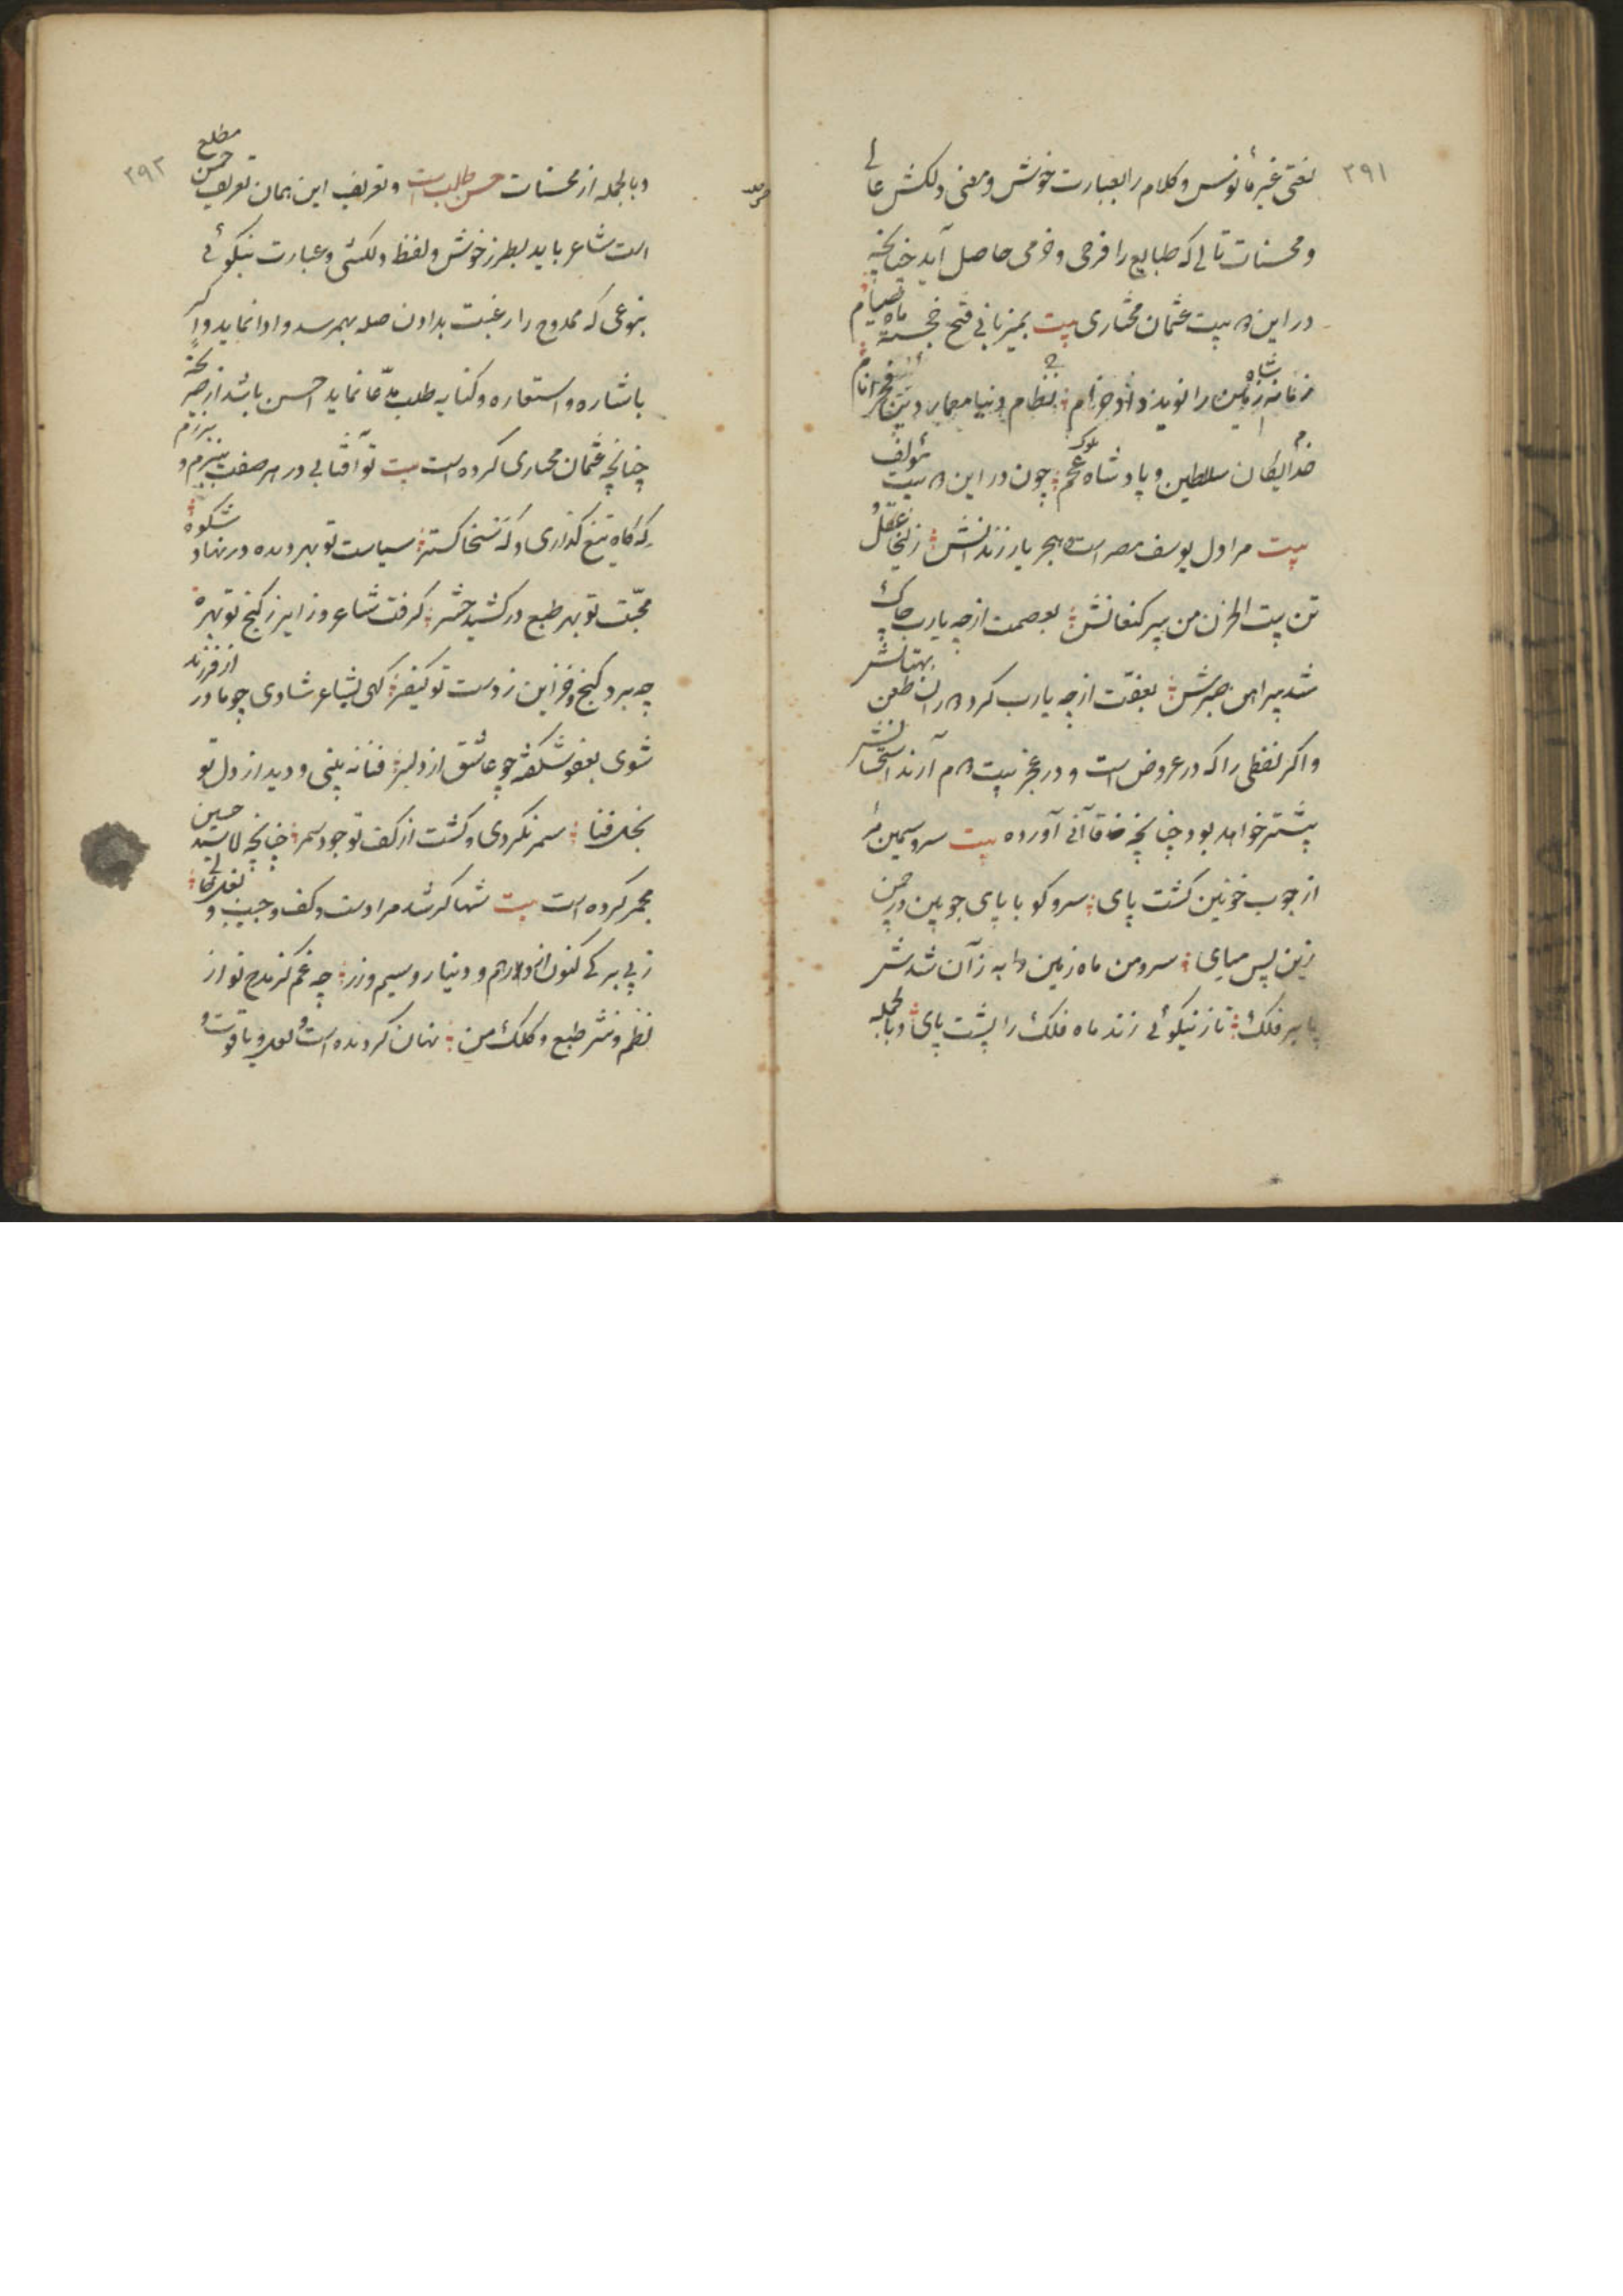 ۳۹۱
لغتی غیر مأنوس و کلام را بعبارت خوش و معنی دلکش عالی
و محسنات تالی که طبایع را فرحی و خرمی حاصل آید چنانچه
در این بیت عثمان مختاری بیت بمیزبانی فتح خجسته ماه صیام
زمانه زمین را نوید داد خرام نظام دنیا معمار دین فخر انام
خدایگان سلاطین و پادشاه عجم چون در این بیت مؤلف
بیت مرا دل یوسف مصر است هجر یار زندانش زلیخا عقل و
تن بیت الحزن من پیر کنعانش بعصمت از چه یارب چاک
شد پیراهن صبرش بعفّت از چه یارب کرد طعن بهتانش
و اگر لفظی را که در عروض است و در عجز بیت هم آرند استحسانش
بیشتر خواهد بود چنانچه خاقانی آورده بیت سرو سیمین
از چوب خونین گشت پای سرو کو با پای چوبین در چمن
زین پس میای سرو من ماه زمین دا به زآن شد شد
پا بر فلک تا ز نیکوئی زند ماه فلک را پشت پای و بالجمله
۳۹۲
و بالجمله از محسنات حسن طلب است و تعریف این همان تعریف حسن مطلع
است شاعر باید بطرز خوش و لفظ دلکش و عبارت نیکوئی
بنوعی که ممدوح را رغبت بدادن صله بهم رسد و ادا نماید و اگر
باشاره و استعاره و کنایه طلب مدّعا نماید احسن باشد از صریح
چنانچه عثمان مختاری کرده است بیت تو آفتابی در هر صفت ببزم و برزم
که گاه تیغ گذاری و که سخا گستر سیاست تو بهر دیده در نهاد شکوه
محبّت تو بهر طبع در کشید حشر گرفت شاعر و زایر ز گنج تو بهره
چه برد گنج و خزاین ز دست تو کیفر کهی بشاعر شادی چو مادر از فرزند
شوی بعفو شکفته چو عاشق از دلبر فنا نه بینی و دید از دل تو
بخل فنا سمر نکردی و گشت از کف تو جود سمر چنانچه لا سید حسین
مجمر کرده است بیت شها کر شد مرا دست و کف و جیب و بغل خالی
ز پی برگی کنون از درهم و دینار و سیم و زر چه غم کز مدح تو از
نظم و نثر طبع و کلک من نهان کردیده است و لعل و یاقوت و